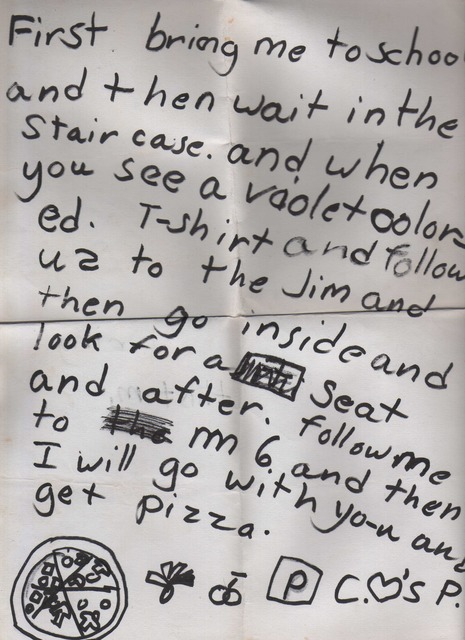 First. bring me to schoo
and then wait in the
Stair case. and when
you see a violet color-
ed. T-shirt and follow
us to the Jim and
then go inside and
look for a seat
and after. follow me
to rm 6 and then
I will go with you and
get pizza.
P C.♡'s P.